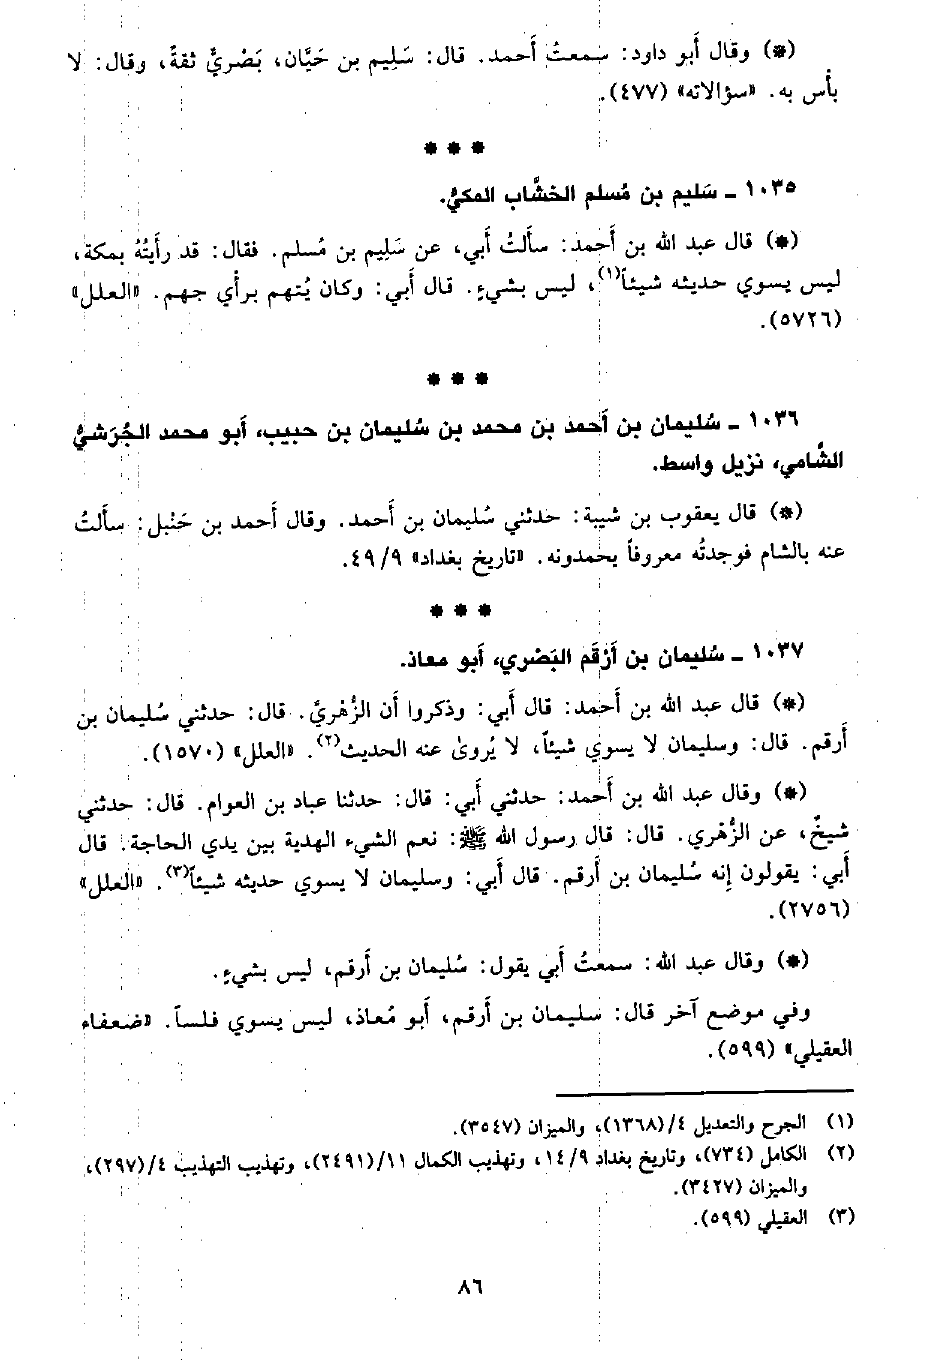 (*) وقال أَبو داود: سمعتُ أَحمد. قال: سَلِيم بن حَيَّان، بَصْريٌّ ثقةٌ، وقال: لا
بأْس به. «سؤالاته» (٤٧٧).
* * *
١٠٣٥ ـ سَليم بن مُسلم الخشَّاب المكيُّ.
(*) قال عبد الله بن أَحمد: سأَلتُ أَبي، عن سَلِيم بن مُسلم. فقال: قد رأَيتُهُ بمكة،
ليس يسوي حديثه شيئاً(١)، ليس بشيءٍ. قال أَبي: وكان يُتهم برأْي جهم. «العلل»
(٥٧٢٦).
* * *
١٠٣٦ ـ سُليمان بن أَحمد بن محمد بن سُليمان بن حبيب، أَبو محمد الجُرَشيُّ
الشَّامي، نزيل واسط.
(*) قال يعقوب بن شيبة: حدثني سُليمان بن أَحمد. وقال أَحمد بن حَنْبل: سأَلتُ
عنه بالشام فوجدتُه معروفاً يحمدونه. «تاريخ بغداد» ٤٩/٩.
* * *
١٠٣٧ ـ سُليمان بن أَرْقَم البَصْري، أَبو معاذ.
(*) قال عبد الله بن أَحمد: قال أَبي: وذكروا أَن الزُّهْريَّ. قال: حدثني سُليمان بن
أَرقم. قال: وسليمان لا يسوي شيئاً، لا يُروىٰ عنه الحديث(٢). «العلل» (١٥٧٠).
(*) وقال عبد الله بن أَحمد: حدثني أَبي: قال: حدثنا عباد بن العوام. قال: حدثني
شيخٌ، عن الزُّهْري. قال: قال رسول الله ﷺ: نعم الشيء الهدية بين يدي الحاجة. قال
أَبي: يقولون إِنه سُليمان بن أَرقم. قال أَبي: وسليمان لا يسوي حديثه شيئاً(٣). «العلل»
(٢٧٥٦).
(*) وقال عبد الله: سمعتُ أَبي يقول: سُليمان بن أَرقم، ليس بشيءٍ.
وفي موضع آخر قال: سليمان بن أَرقم، أَبو مُعاذ، ليس يسوي فلساً. «ضعفاء
العقيلي» (٥٩٩).
(١) الجرح والتعديل ٤/(١٣٦٨)، والميزان (٣٥٤٧).
(٢) الكامل (٧٣٤)، وتاريخ بغداد ١٤/٩، وتهذيب الكمال ١١/(٢٤٩١)، وتهذيب التهذيب ٤/(٢٩٧)،
والميزان (٣٤٢٧).
(٣) العقيلي (٥٩٩).
٨٦